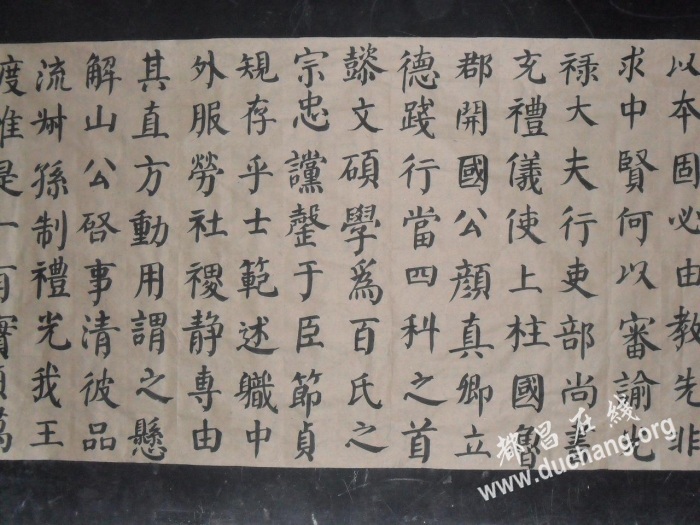 以本固必由教先非
求中賢何以審諭光
禄大夫行吏部尚書
充禮儀使上柱國魯
郡開國公顔真卿立
德踐行當四科之首
懿文碩學爲百氏之
宗忠讜罄于臣節貞
規存乎士範述職中
外服勞社稷静專由
其直方動用謂之懸
解山公啓事清彼品
流叔孫制禮光我王
度惟是一有實萬
都昌在綫
www.duchang.org